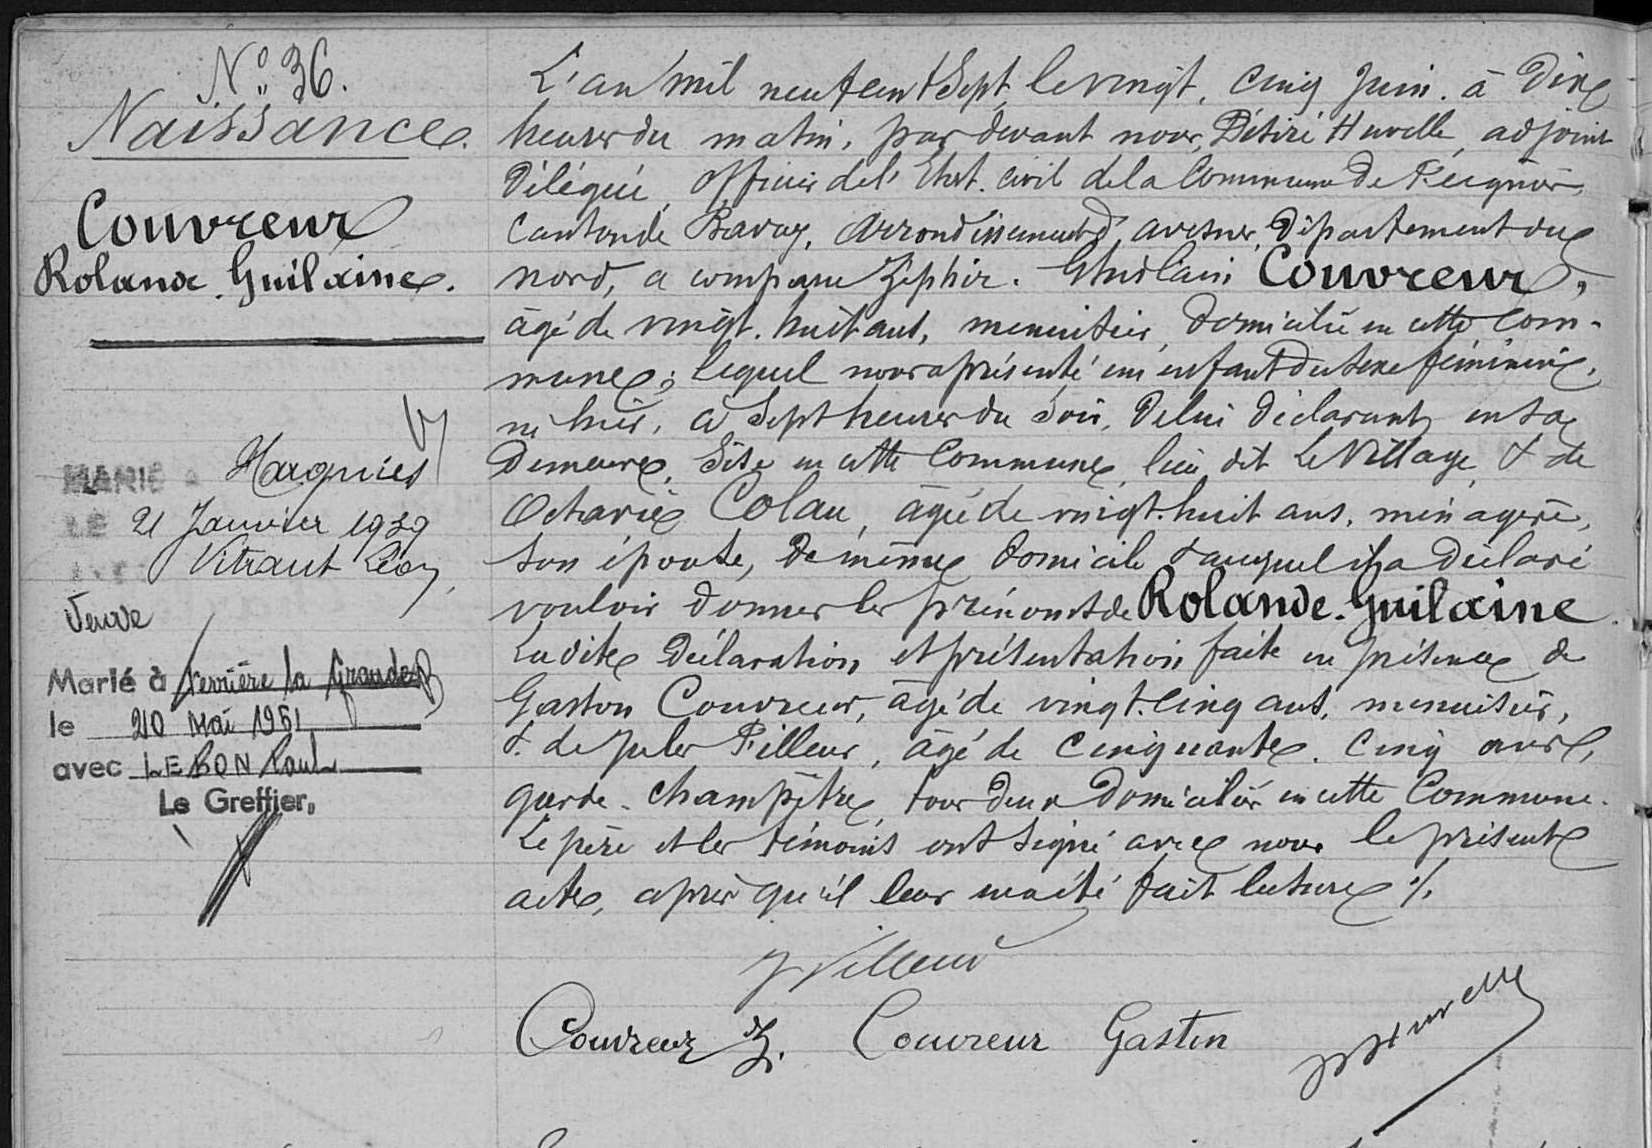 N° 36.
Naissance.
Couvreur
Rolande Guilaine.
MARIÉ à Hargnies
LE 21 Janvier 1929
Vitraut Léon
Veuve
Marié à Ferrière la Grande
le 20 Mai 1951
avec LEBON Paul
Le Greffier,
L'an mil neuf cent Sept, le vingt-cinq Juin à Dix
heures du matin, par devant nous, Désiré Huvelle, adjoint
Délégué, officier de l'Etat civil de la Commune de Feignies,
Canton de Bavay, arrondissement d'avesnes, Département du
nord, a comparu Zéphir Ghislain Couvreur,
âgé de vingt-huit ans, menuisier, domicilié en cette Com-
mune, lequel nous a présenté un enfant du sexe féminin,
né hier, à Sept heures du Soir, De lui déclarant, en sa
Demeure, Sise en cette Commune, lieu dit Le Village, & de
Octavie Colau, âgée de vingt-huit ans, ménagère,
son épouse, de même domicile & auquel il a déclaré
vouloir donner les prénoms de Rolande Guilaine.
Ladite Déclaration et présentation faite en présence de
Gaston Couvreur, âgé de vingt-cinq ans, menuisier,
& de Jules Filleur, âgé de Cinquante-Cinq ans,
garde-champêtre, tous deux Domiciliés en cette Commune.
Le père et les témoins ont signé avec nous le présent
acte, après qu'il leur en a été fait lecture ./.
J Filleur
Couvreur Z. Couvreur Gaston
D Huvelle